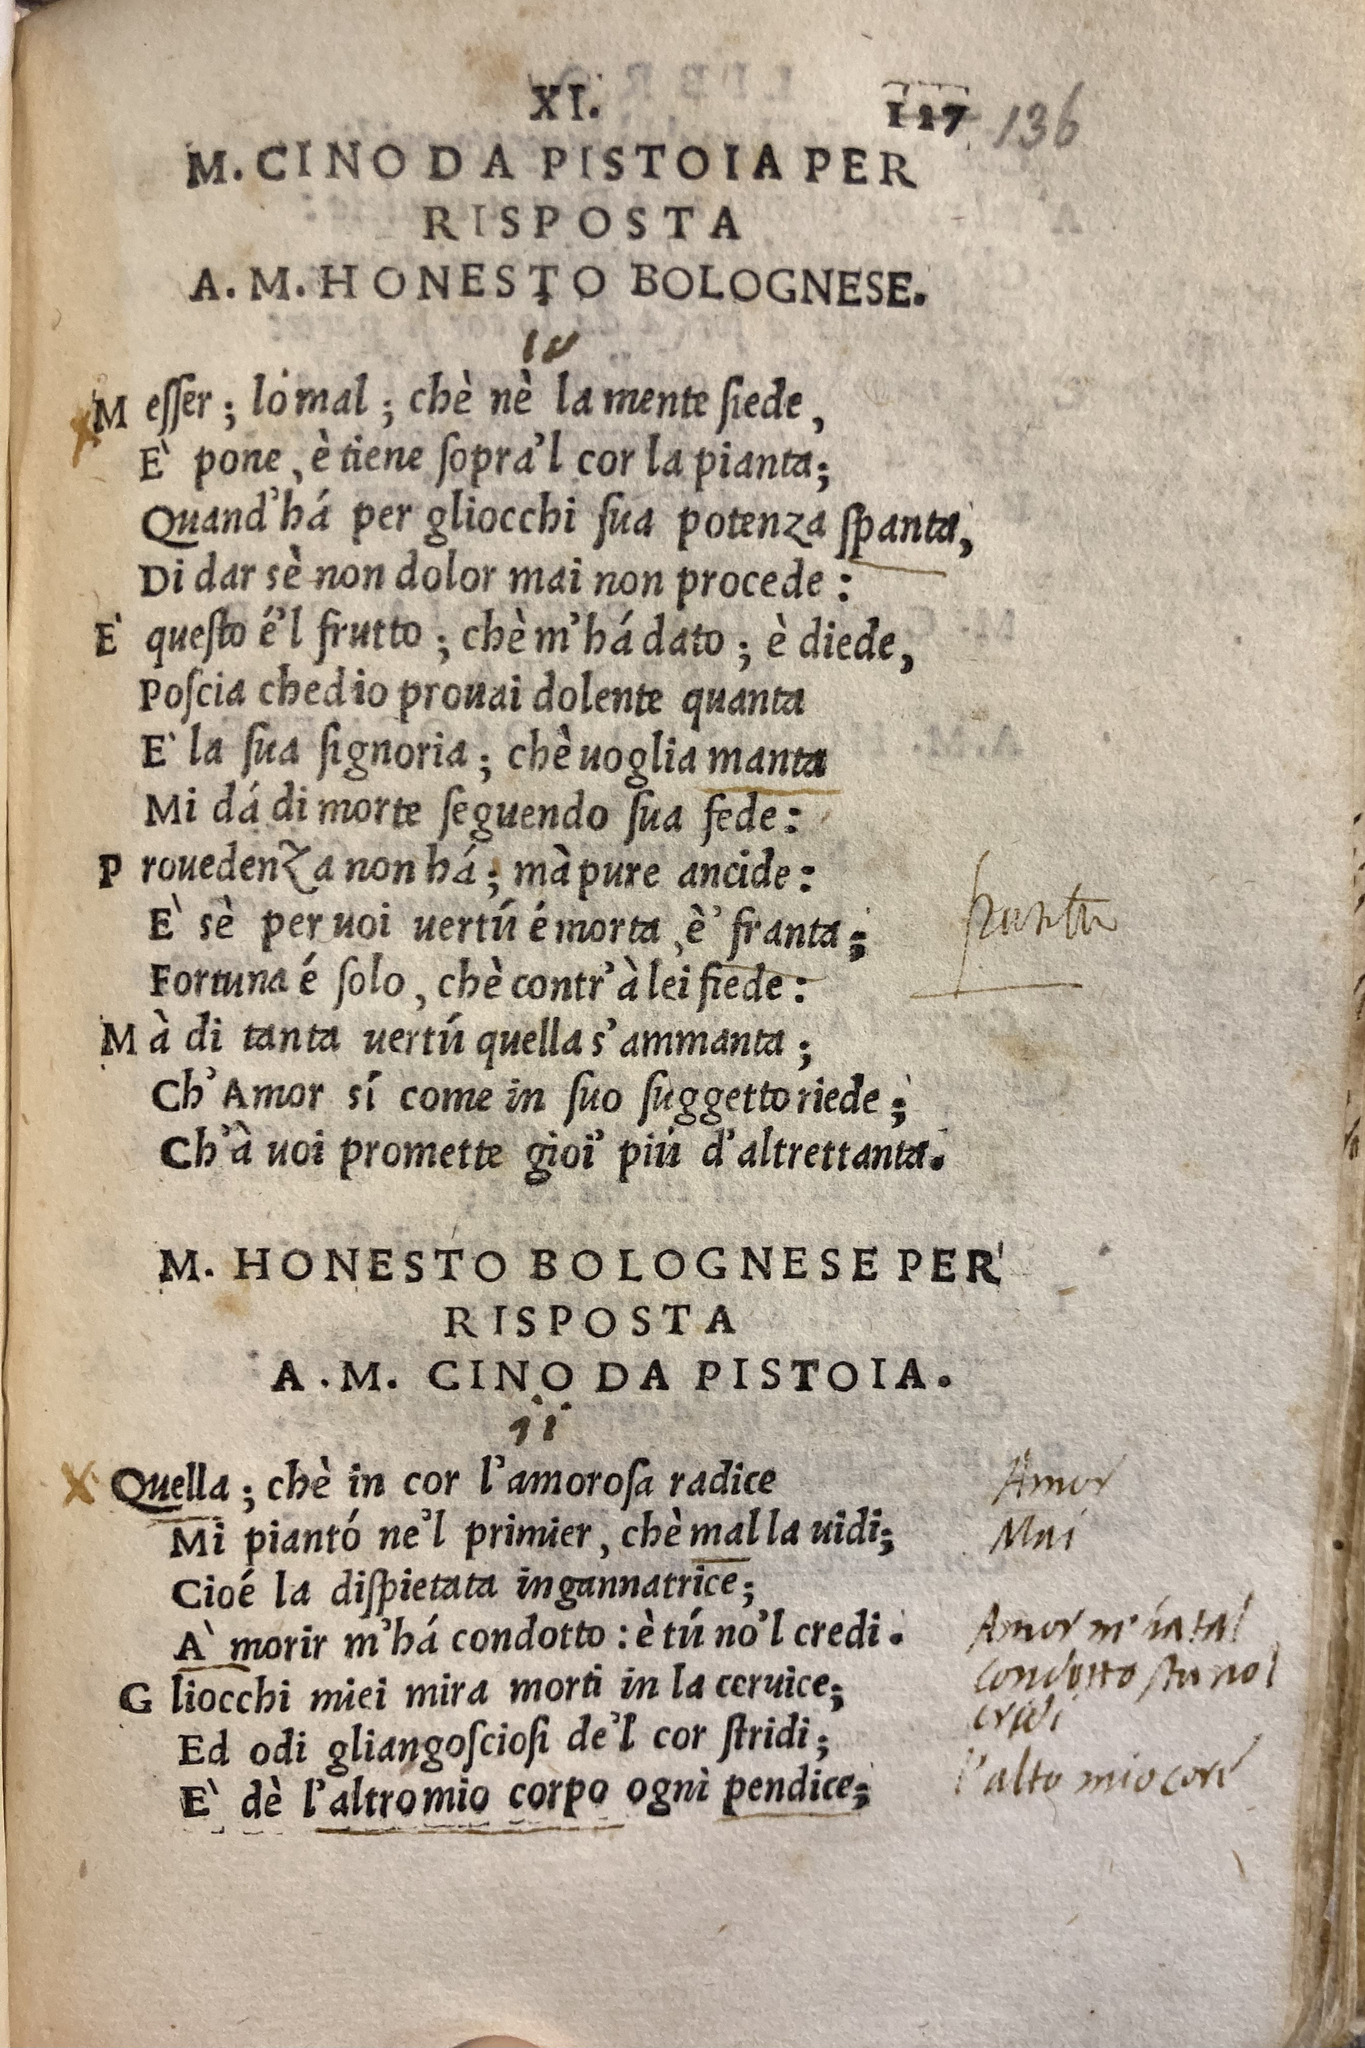 XI. 127 136
M. CINO DA PISTOIA PER
RISPOSTA
A. M. HONESTO BOLOGNESE.
Messer; lo mal; chè nè la mente ſiede,
E' pone, è tiene ſopra'l cor la pianta;
Quand'há per gliocchi ſua potenza ſpanta,
Di dar sè non dolor mai non procede:
E' queſto é'l frutto; chè m'há dato; è diede,
Poſcia ched io prouai dolente quanta
E' la ſua ſignoria; chè uoglia manta
Mi dá di morte ſeguendo ſua fede:
Prouedenza non há; mà pure ancide:
E' sè per uoi uertú é morta, è' franta;
Fortuna é ſolo, chè contr'à lei fiede:
Mà di tanta uertú quella s'ammanta;
Ch'Amor sí come in ſuo ſuggetto riede;
Ch'à uoi promette gioi' piú d'altrettanta.
M. HONESTO BOLOGNESE PER
RISPOSTA
A. M. CINO DA PISTOIA.
ii
Quella; chè in cor l'amoroſa radice Amor
Mi piantó ne'l primier, chè mal la uidi; Mai
Cioé la diſpietata ingannatrice;
A' morir m'há condotto: è tú no'l credi. Amor m'ia tal
condotto
Gliocchi miei mira morti in la ceruice;
Ed odi gliangoſcioſi de'l cor ſtridi;
E' dè l'altro mio corpo ogni pendice; l'alto mio core